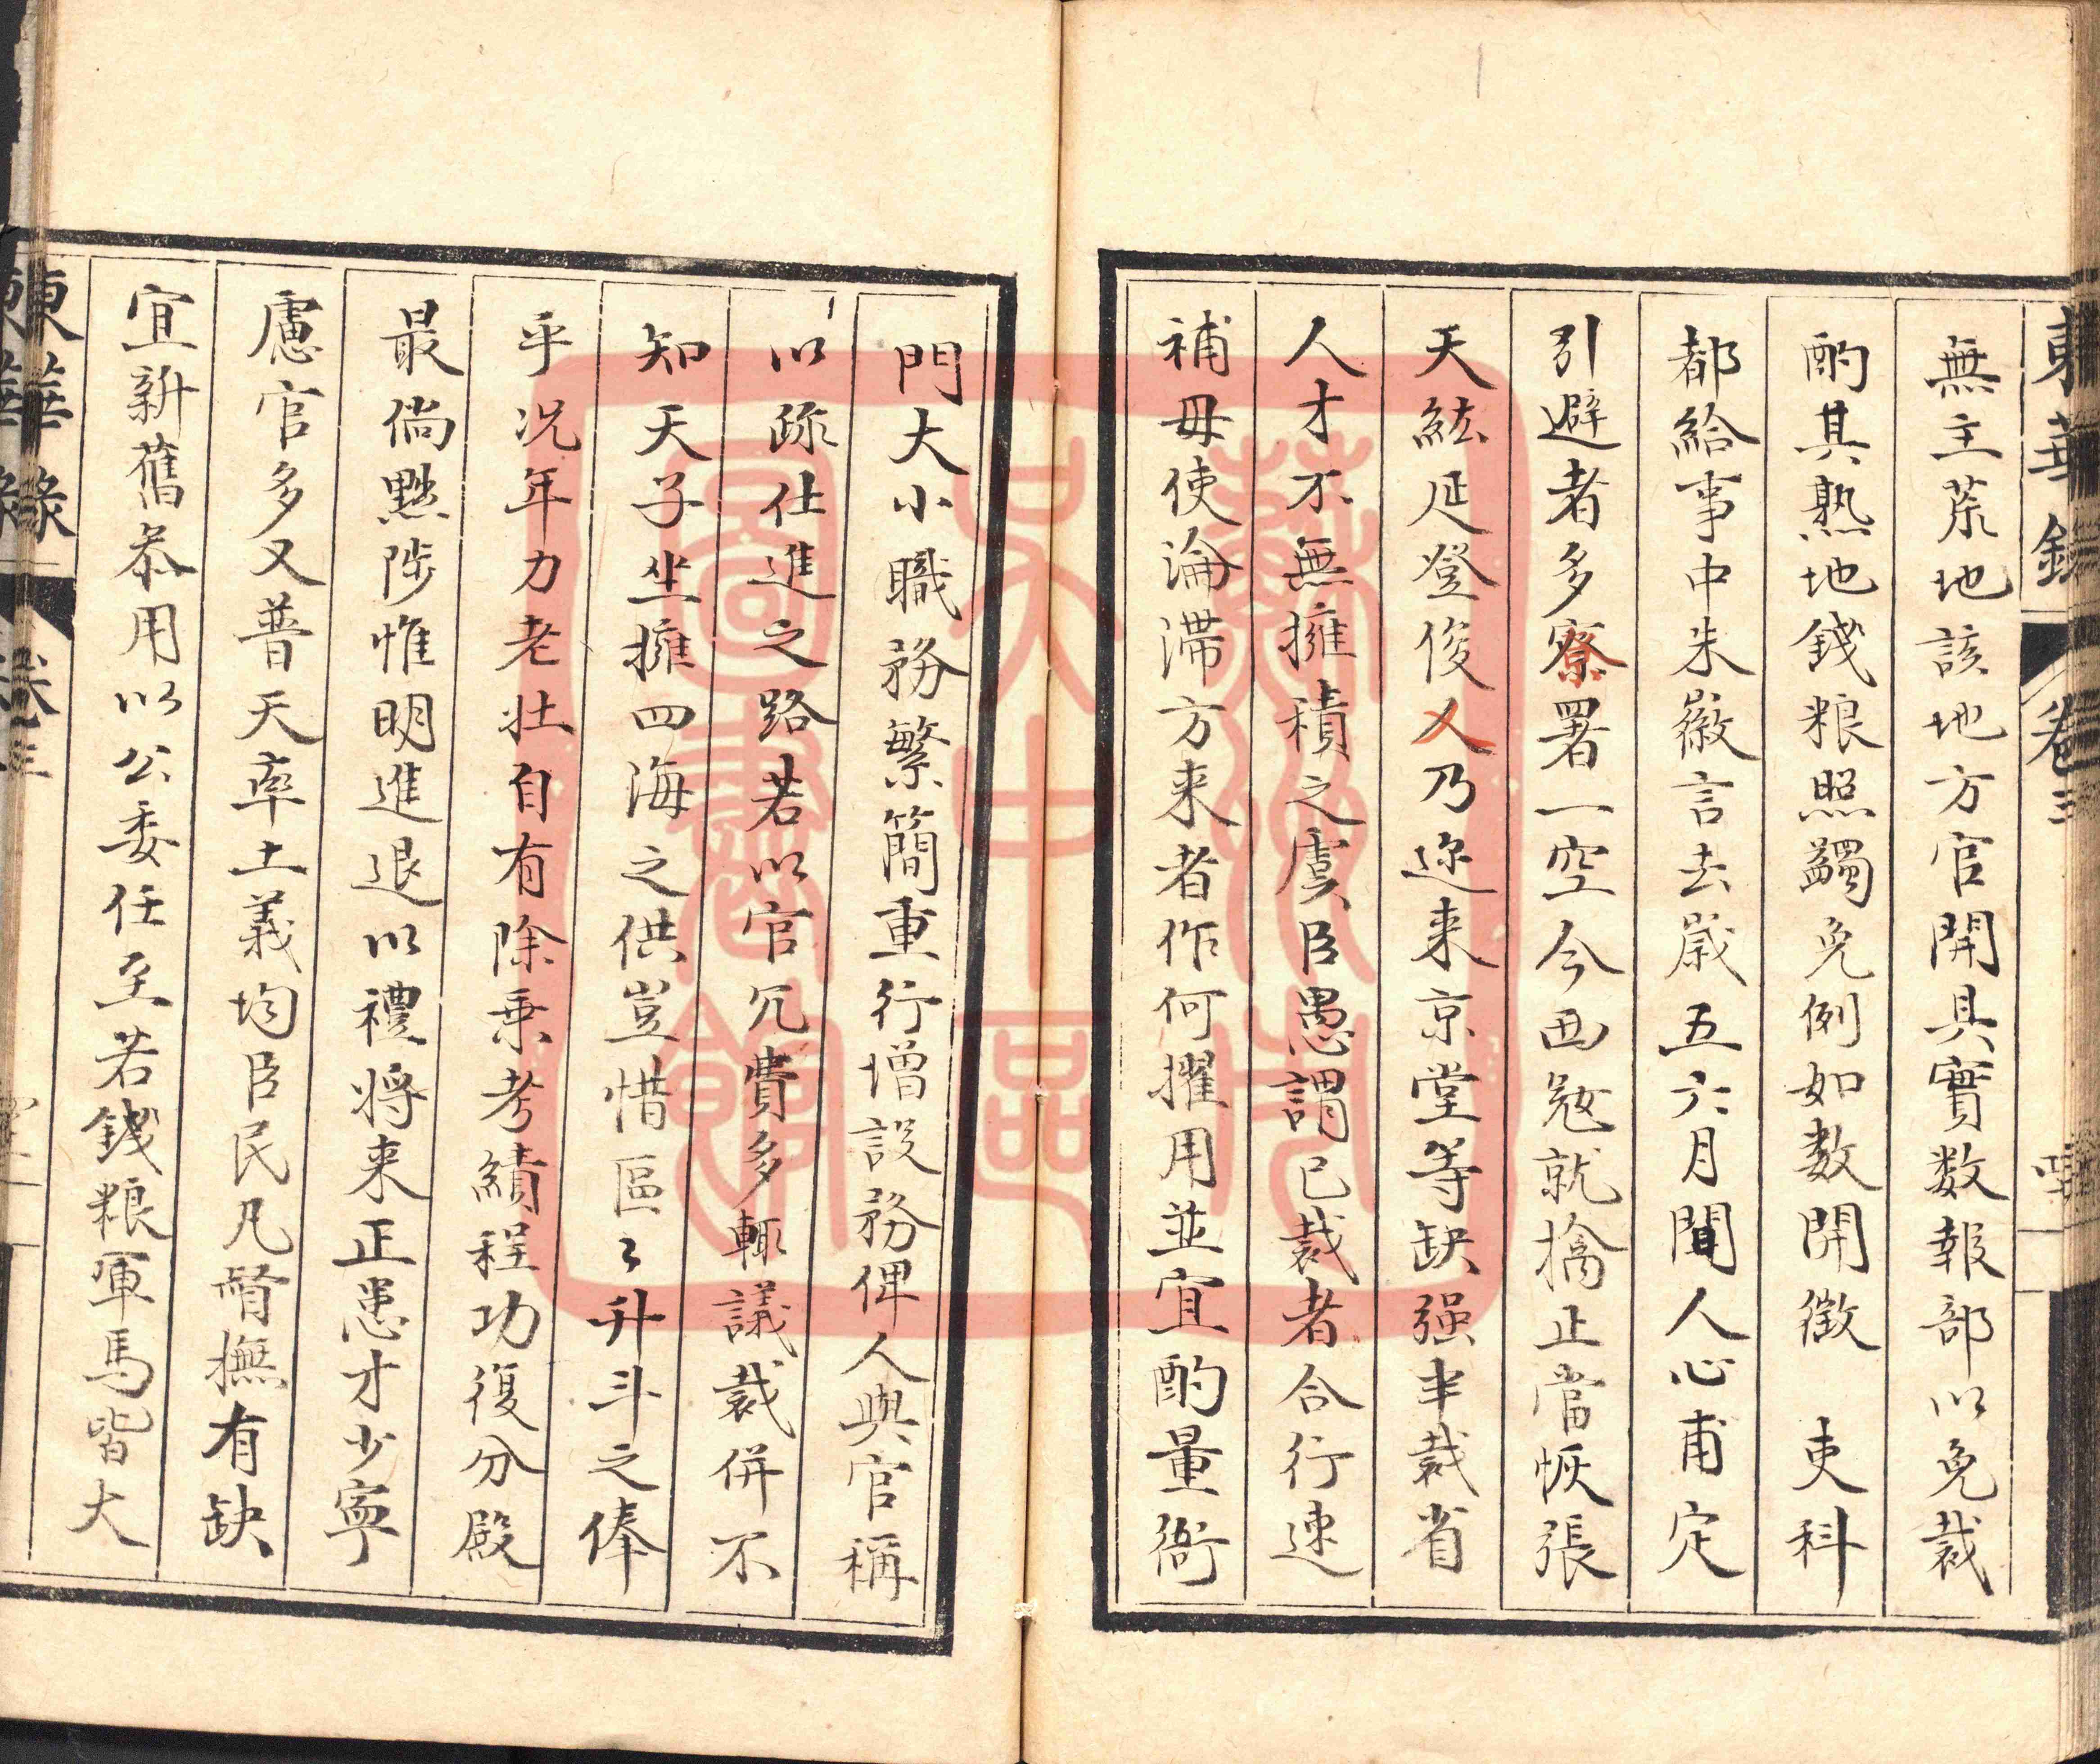 東華錄 卷三
無主荒地該地方官開具實数報部以免裁
酌其熟地錢粮照蠲免例如数開徴 吏科
都給事中朱徽言去嵗五六月聞人心甫定
引避者多寮署一空今西寇就擒正當恢張
天紘延登俊乂乃迩来京堂等缺强半裁省
人才不無擁積之虞臣愚謂已裁者合行速
補毋使淪滯方来者作何擢用並宜酌量衙
門大小職務繁簡重行增設務俾人與官稱
以疏仕進之路若以官冗費多輒議裁併不
知天子坐擁四海之供豈惜區〻升斗之俸
乎况年力老壯自有除乗考績程功復分殿
最倘黜陟惟明進退以禮将来正患才少寧
慮官多又普天率土義均臣民凡督撫有缺
宜新舊叅用以公委任至若錢粮軍馬皆大
東華錄 卷三
藝術先 吳中區 圖書館